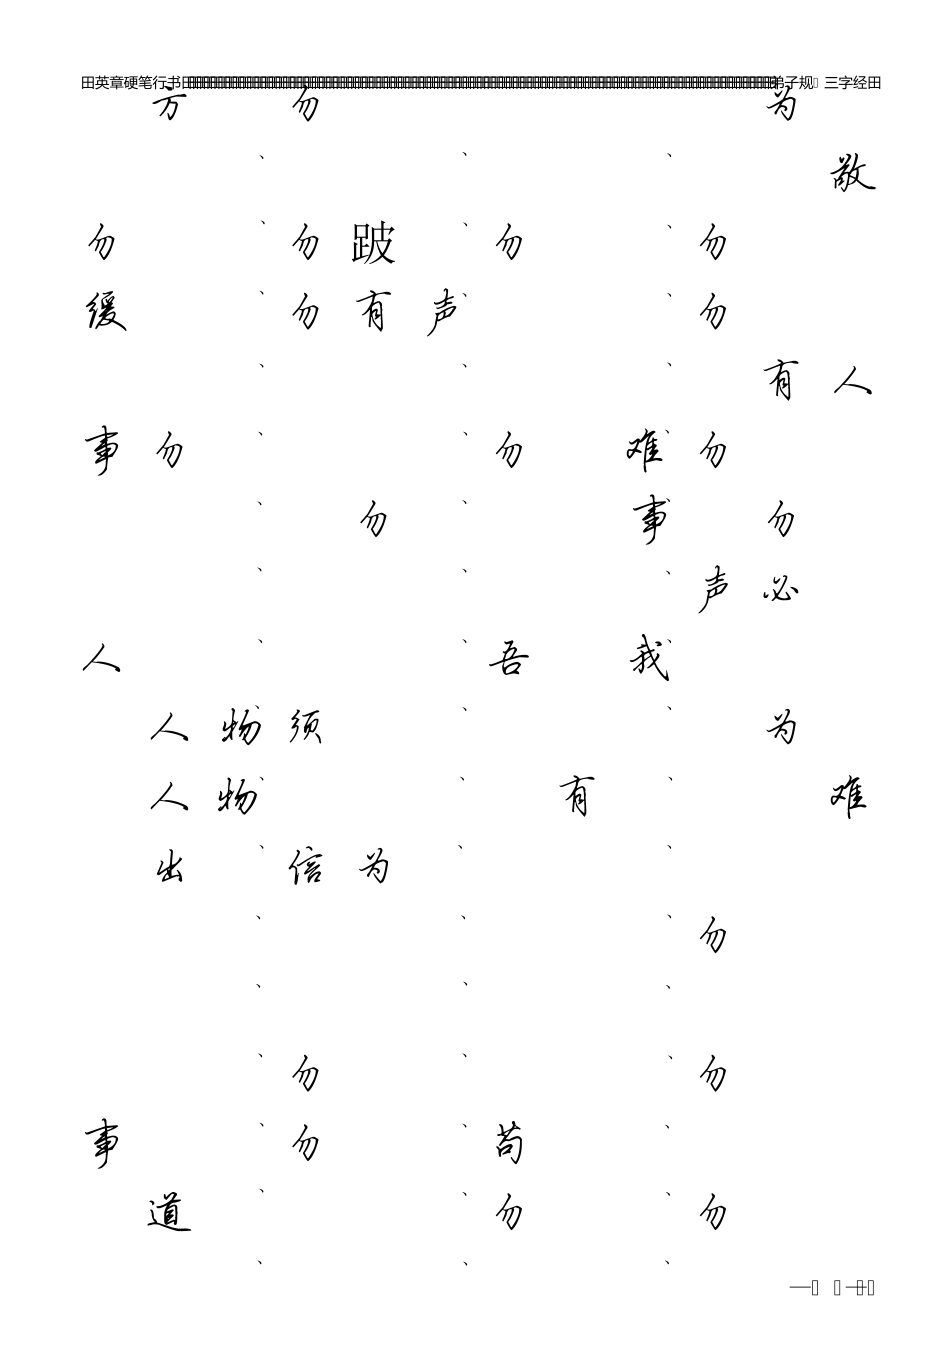 田英章硬笔行书田 弟子规 三字经田
方 勿 为
、 、 、
敬
、 、 、
勿 勿 跛 勿 勿
、 、 、
缓 勿 有 声 勿
、 、 、
有 人
、 、 、
事 勿 勿 难 勿
、 、 、
勿 事 勿
、 、 、
声 必
、 、 、
人 吾 我
、 、 、
人 物 须 为
、 、 、
人 物 有 难
、 、 、
出 信 为
、 、 、
勿
、 、 、
、 、 、
勿 勿
、 、 、
事 勿 苟
、 、 、
道 勿 勿
、 、 、